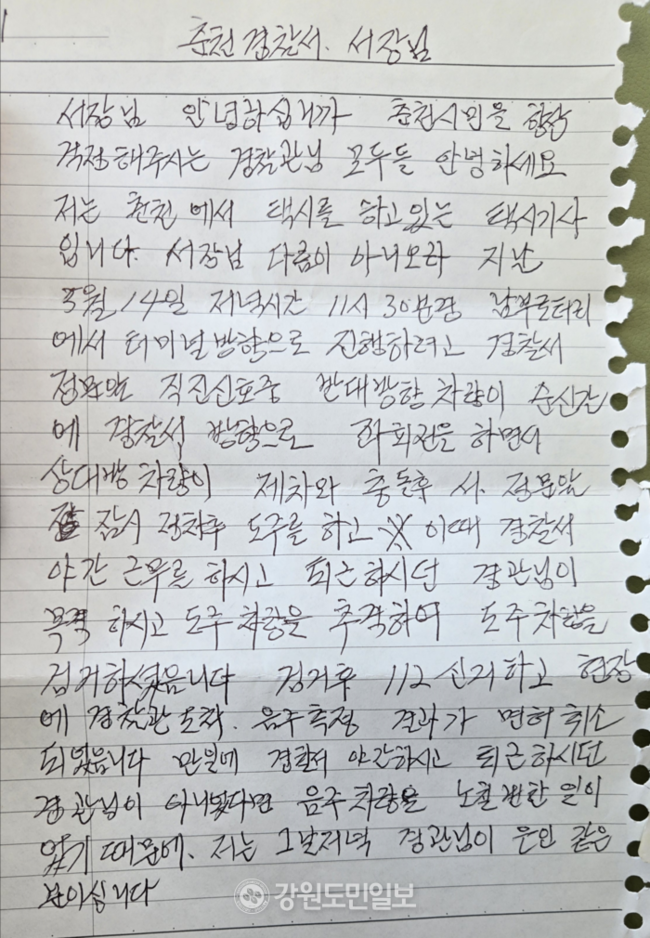 춘천경찰서. 서장님
서장님 안녕하십니까 춘천시민을 항상
걱정해주시는 경찰관님 모두들 안녕하세요
저는 춘천에서 택시를 하고있는 택시기사
입니다. 서장님 다름이 아니오라 지난
5월 14일 저녁시간 11시 30분경 남부로터리
에서 터미널방향으로 진행하려고 경찰서
정문앞 직진신호중 반대방향 차량이 순식간
에 경찰서 방향으로 좌회전을 하면서
상대방 차량이 제차와 충돌후 서. 정문앞
잠시 정차후 도주를 하고 이때 경찰서
야간 근무를 하시고 퇴근하시던 경관님이
목격 하시고 도주차량을 추격하여 도주차량을
검거하셨읍니다 검거후 112 신고하고 현장
에 경찰관 도착. 음주측정 결과가 면허취소
되었읍니다 만일에 경찰서 야간하시고 퇴근하시던
경관님이 아니였다면 음주차량을 노칠뻔한 일이
였기 때문에. 저는 그날저녁 경관님이 은인 같은
분이십니다
강원도민일보